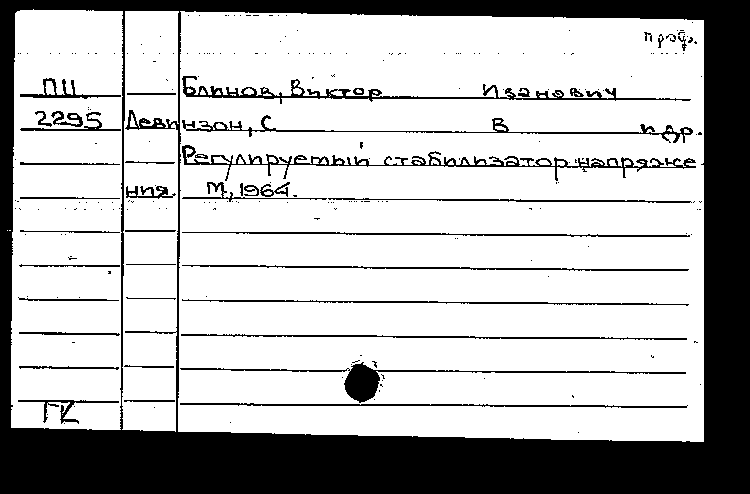 проф.
ПII Блинов, Виктор Иванович
2295 Левинзон, С В и др.
Регулируемый стабилизатор напряже
ния. М, 1964.
ГК